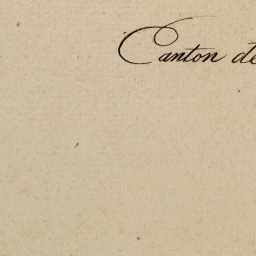 Canton de